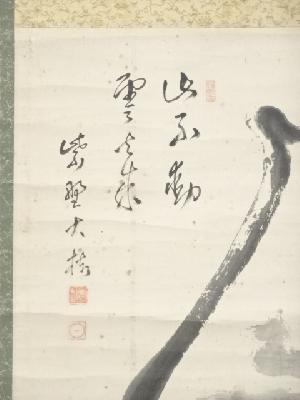 山不動
雲去来
紫野大